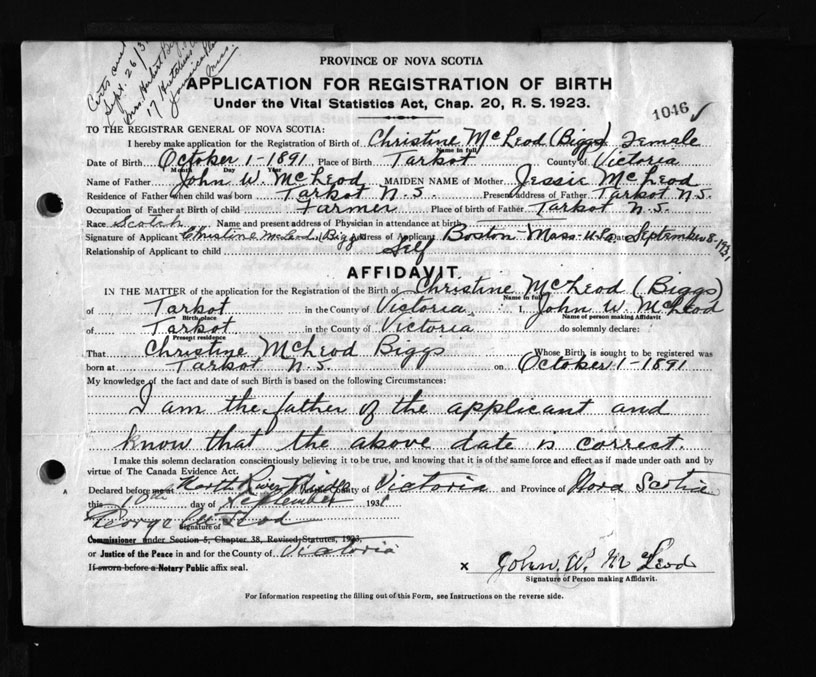 PROVINCE OF NOVA SCOTIA
Certs
Sept. 26/3
Mrs. Herbert
17
Mass.
APPLICATION FOR REGISTRATION OF BIRTH
Under the Vital Statistics Act, Chap. 20, R. S. 1923.
1046 ✓
TO THE REGISTRAR GENERAL OF NOVA SCOTIA:
I hereby make application for the Registration of Birth of Christine McLeod (Biggs) Female
Name in full
Date of Birth October 1-1891 Place of Birth Tarkot County of Victoria
Month Day Year
Name of Father John W. McLeod MAIDEN NAME of Mother Jessie McLeod
Residence of Father when child was born Tarkot N.S. Present Address of Father Tarkot N.S.
Occupation of Father at Birth of child Farmer Place of birth of Father Tarkot N.S.
Race Scotch Name and present address of Physician in attendance at birth
Signature of Applicant Christine McLeod (Biggs) Address of Applicant Boston Mass. U.S. Date September 8-1931
Relationship of Applicant to child Self
AFFIDAVIT
IN THE MATTER of the application for the Registration of the Birth of Christine McLeod (Biggs)
Name in full
of Tarkot in the County of Victoria I, John W. McLeod
Birth place Name of person making Affidavit
of Tarkot in the County of Victoria do solemnly declare:
Present residence
That Christine McLeod Biggs Whose Birth is sought to be registered was
born at Tarkot N.S. on October 1-1891
My knowledge of the fact and date of such Birth is based on the following Circumstances:
I am the father of the applicant and
know that the above date is correct.
I make this solemn declaration conscientiously believing it to be true, and knowing that it is of the same force and effect as if made under oath and by
virtue of The Canada Evidence Act.
Declared before me at North River Bridge County of Victoria and Province of Nova Scotia
this 10th day of September 1931
George McLeod
Signature of
Commissioner under Section 5, Chapter 38, Revised Statutes, 1923.
or Justice of the Peace in and for the County of Victoria
If sworn before a Notary Public affix seal.
x John W. McLeod
Signature of Person making Affidavit.
For Information respecting the filling out of this Form, see Instructions on the reverse side.